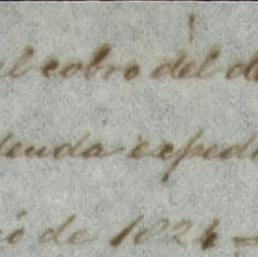 al cobro del de
euda expedi
ió de 1824